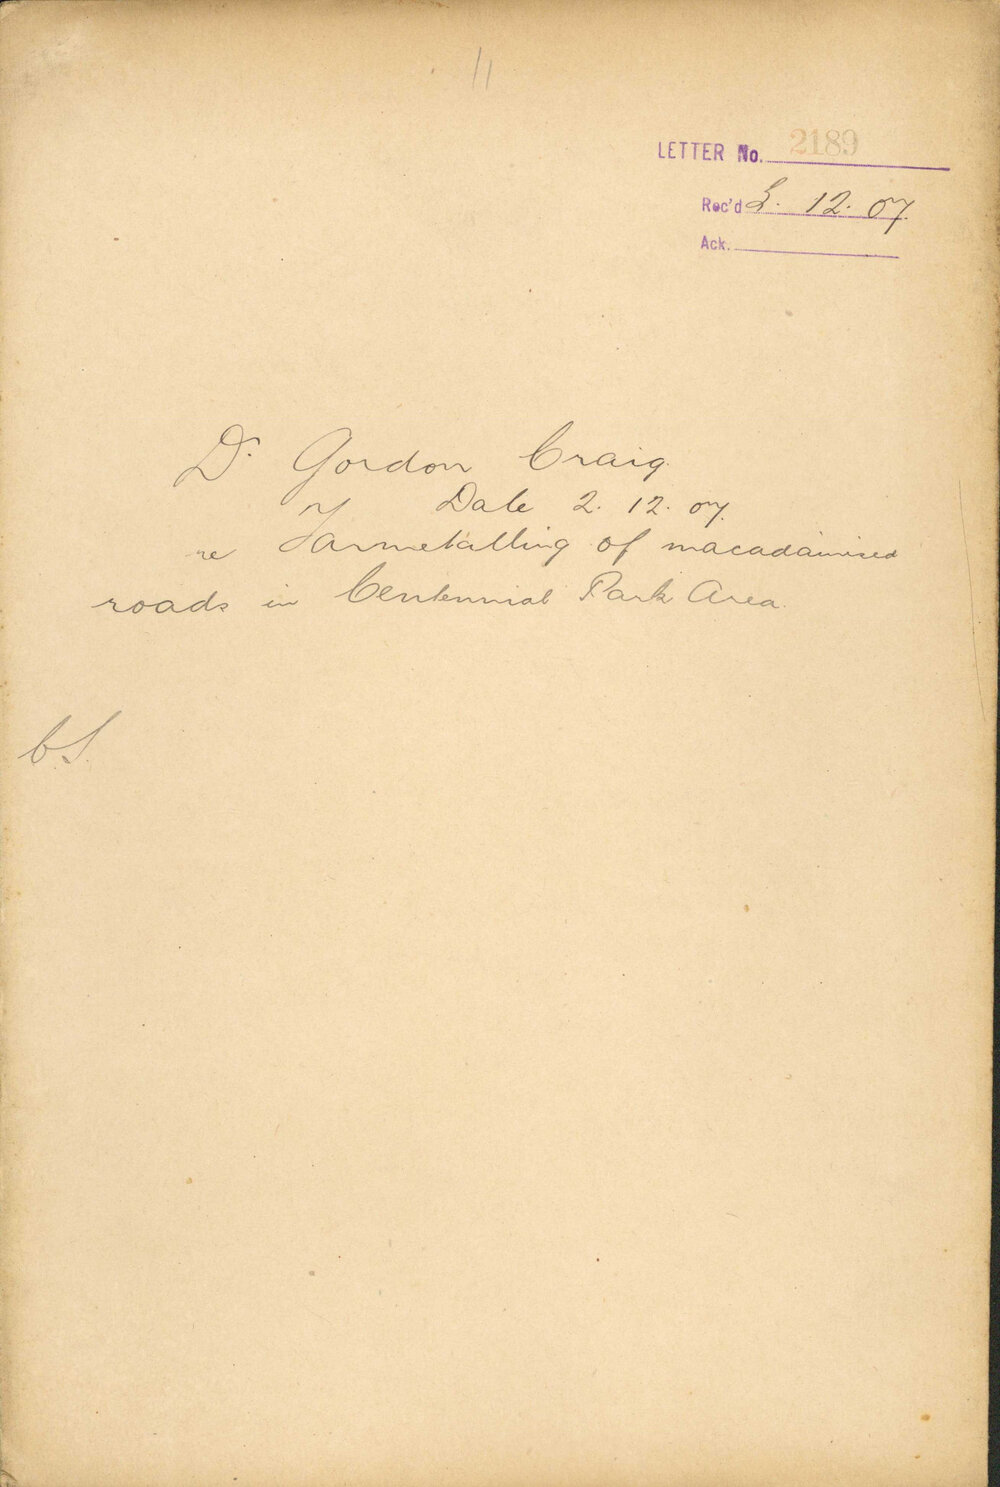 11
LETTER No. 2189
Rec'd 2. 12. 07
Ack.
Dr. Gordon Craig
Date 2. 12. 07.
re Tarmetalling of macadamised
roads in Centennial Park Area.